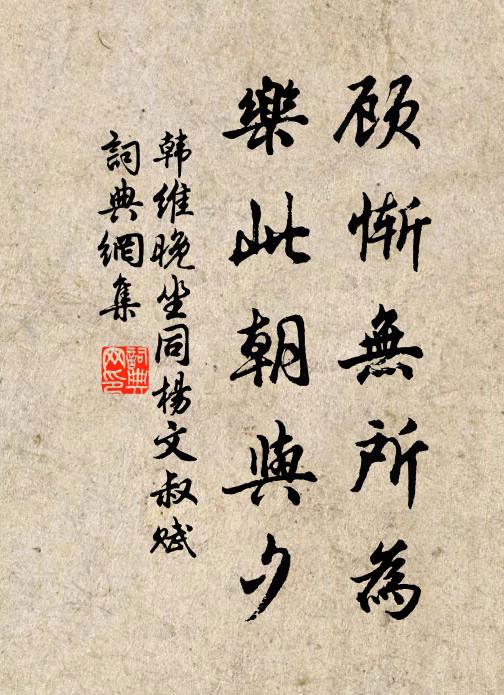 顾惭無所為
樂此朝與夕
韩維晚坐同楊文叔赋
詞典網集
詞典网印